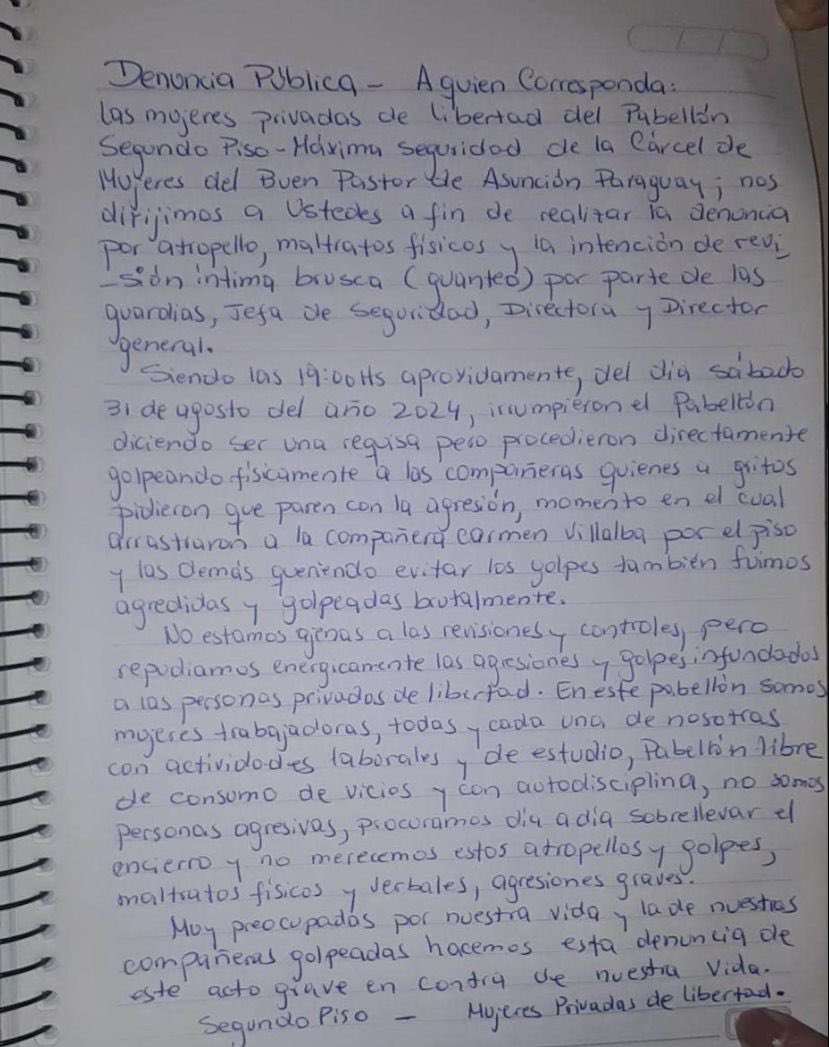 Denuncia Pública - A quien Corresponda:
las mujeres privadas de libertad del Pabellón
Segundo Piso - Máxima seguridad de la Cárcel de
Mujeres del Buen Pastor de Asunción Paraguay; nos
dirijimos a Ustedes a fin de realizar la denuncia
por atropello, maltratos físicos y la intención de revi
-sión íntima brusca (guanteo) por parte de las
guardias, Jefa de Seguridad, Directora y Director
general.
Siendo las 19:00Hs aproxidamente, del día sábado
31 de agosto del año 2024, irrumpieron el Pabellón
diciendo ser una requisa pero procedieron directamente
golpeando físicamente a las compañeras quienes a gritos
pidieron que paren con la agresión, momento en el cual
arrastraron a la compañera Carmen Villalba por el piso
y las demás queriendo evitar los golpes también fuimos
agredidas y golpeadas brutalmente.
No estamos ajenas a las revisiones y controles, pero
repudiamos energicamente las agresiones y golpes infundados
a las personas privadas de libertad. En este pabellón somos
mujeres trabajadoras, todas y cada una de nosotras
con actividades laborales y de estudio, Pabellón libre
de consumo de vicios y con autodisciplina, no somos
personas agresivas, procuramos día a día sobrellevar el
encierro y no merecemos estos atropellos y golpes,
maltratos físicos y verbales, agresiones graves.
Muy preocupadas por nuestra vida y la de nuestras
compañeras golpeadas hacemos esta denuncia de
este acto grave en contra de nuestra vida.
Segundo Piso - Mujeres Privadas de libertad.